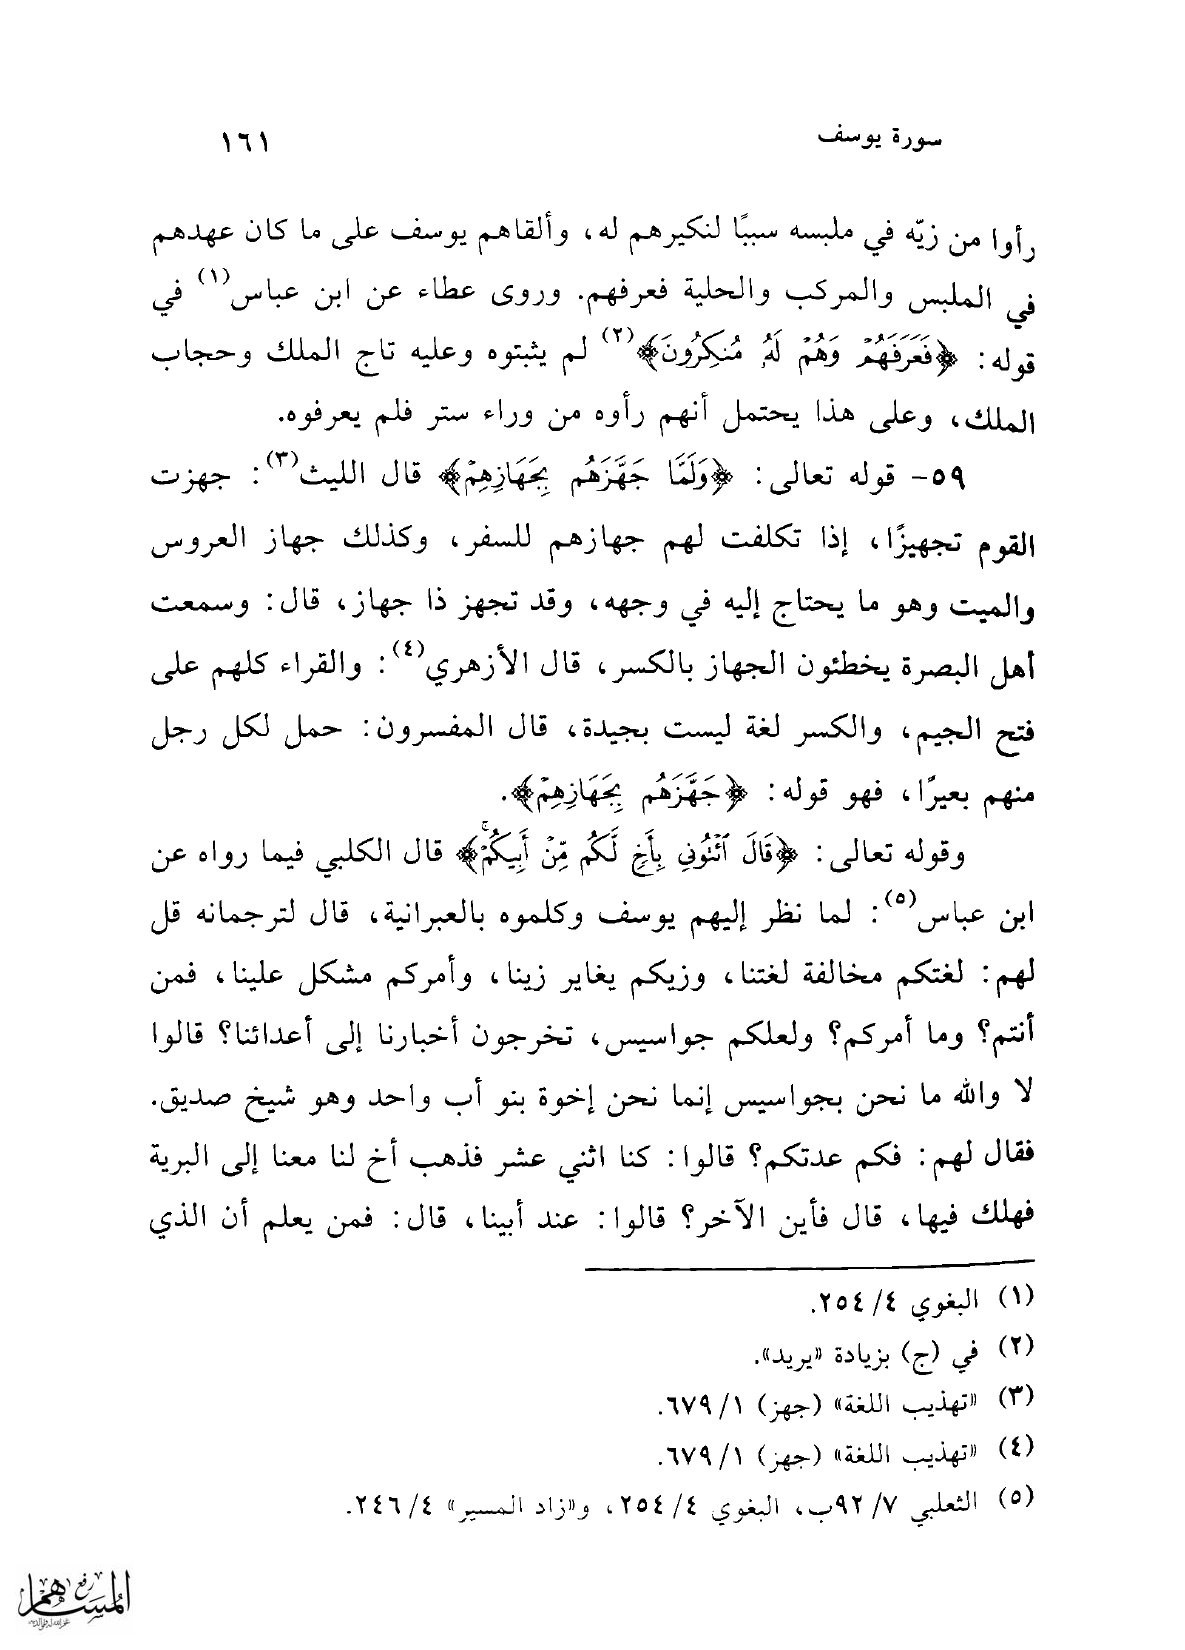 سورة يوسف ١٦١
رأوا من زيّه في ملبسه سببًا لنكيرهم له، وألقاهم يوسف على ما كان عهدهم
في الملبس والمركب والحلية فعرفهم. وروى عطاء عن ابن عباس(١) في
قوله: ﴿فَعَرَفَهُمْ وَهُمْ لَهُ مُنكِرُونَ﴾(٢) لم يثبتوه وعليه تاج الملك وحجاب
الملك، وعلى هذا يحتمل أنهم رأوه من وراء ستر فلم يعرفوه.
٥٩- قوله تعالى: ﴿وَلَمَّا جَهَّزَهُم بِجَهَازِهِمْ﴾ قال الليث(٣): جهزت
القوم تجهيزًا، إذا تكلفت لهم جهازهم للسفر، وكذلك جهاز العروس
والميت وهو ما يحتاج إليه في وجهه، وقد تجهز ذا جهاز، قال: وسمعت
أهل البصرة يخطئون الجهاز بالكسر، قال الأزهري(٤): والقراء كلهم على
فتح الجيم، والكسر لغة ليست بجيدة، قال المفسرون: حمل لكل رجل
منهم بعيرًا، فهو قوله: ﴿جَهَّزَهُم بِجَهَازِهِمْ﴾.
وقوله تعالى: ﴿قَالَ ٱئْتُونِي بِأَخٍ لَّكُم مِّنْ أَبِيكُمْ ۚ﴾ قال الكلبي فيما رواه عن
ابن عباس(٥): لما نظر إليهم يوسف وكلموه بالعبرانية، قال لترجمانه قل
لهم: لغتكم مخالفة لغتنا، وزيكم يغاير زينا، وأمركم مشكل علينا، فمن
أنتم؟ وما أمركم؟ ولعلكم جواسيس، تخرجون أخبارنا إلى أعدائنا؟ قالوا
لا والله ما نحن بجواسيس إنما نحن إخوة بنو أب واحد وهو شيخ صديق.
فقال لهم: فكم عدتكم؟ قالوا: كنا اثني عشر فذهب أخ لنا معنا إلى البرية
فهلك فيها، قال فأين الآخر؟ قالوا: عند أبينا، قال: فمن يعلم أن الذي
(١) البغوي ٤/ ٢٥٤.
(٢) في (ج) بزيادة «يريد».
(٣) «تهذيب اللغة» (جهز) ١/ ٦٧٩.
(٤) «تهذيب اللغة» (جهز) ١/ ٦٧٩.
(٥) الثعلبي ٧/ ٩٢ب، البغوي ٤/ ٢٥٤، و«زاد المسير» ٤/ ٢٤٦.